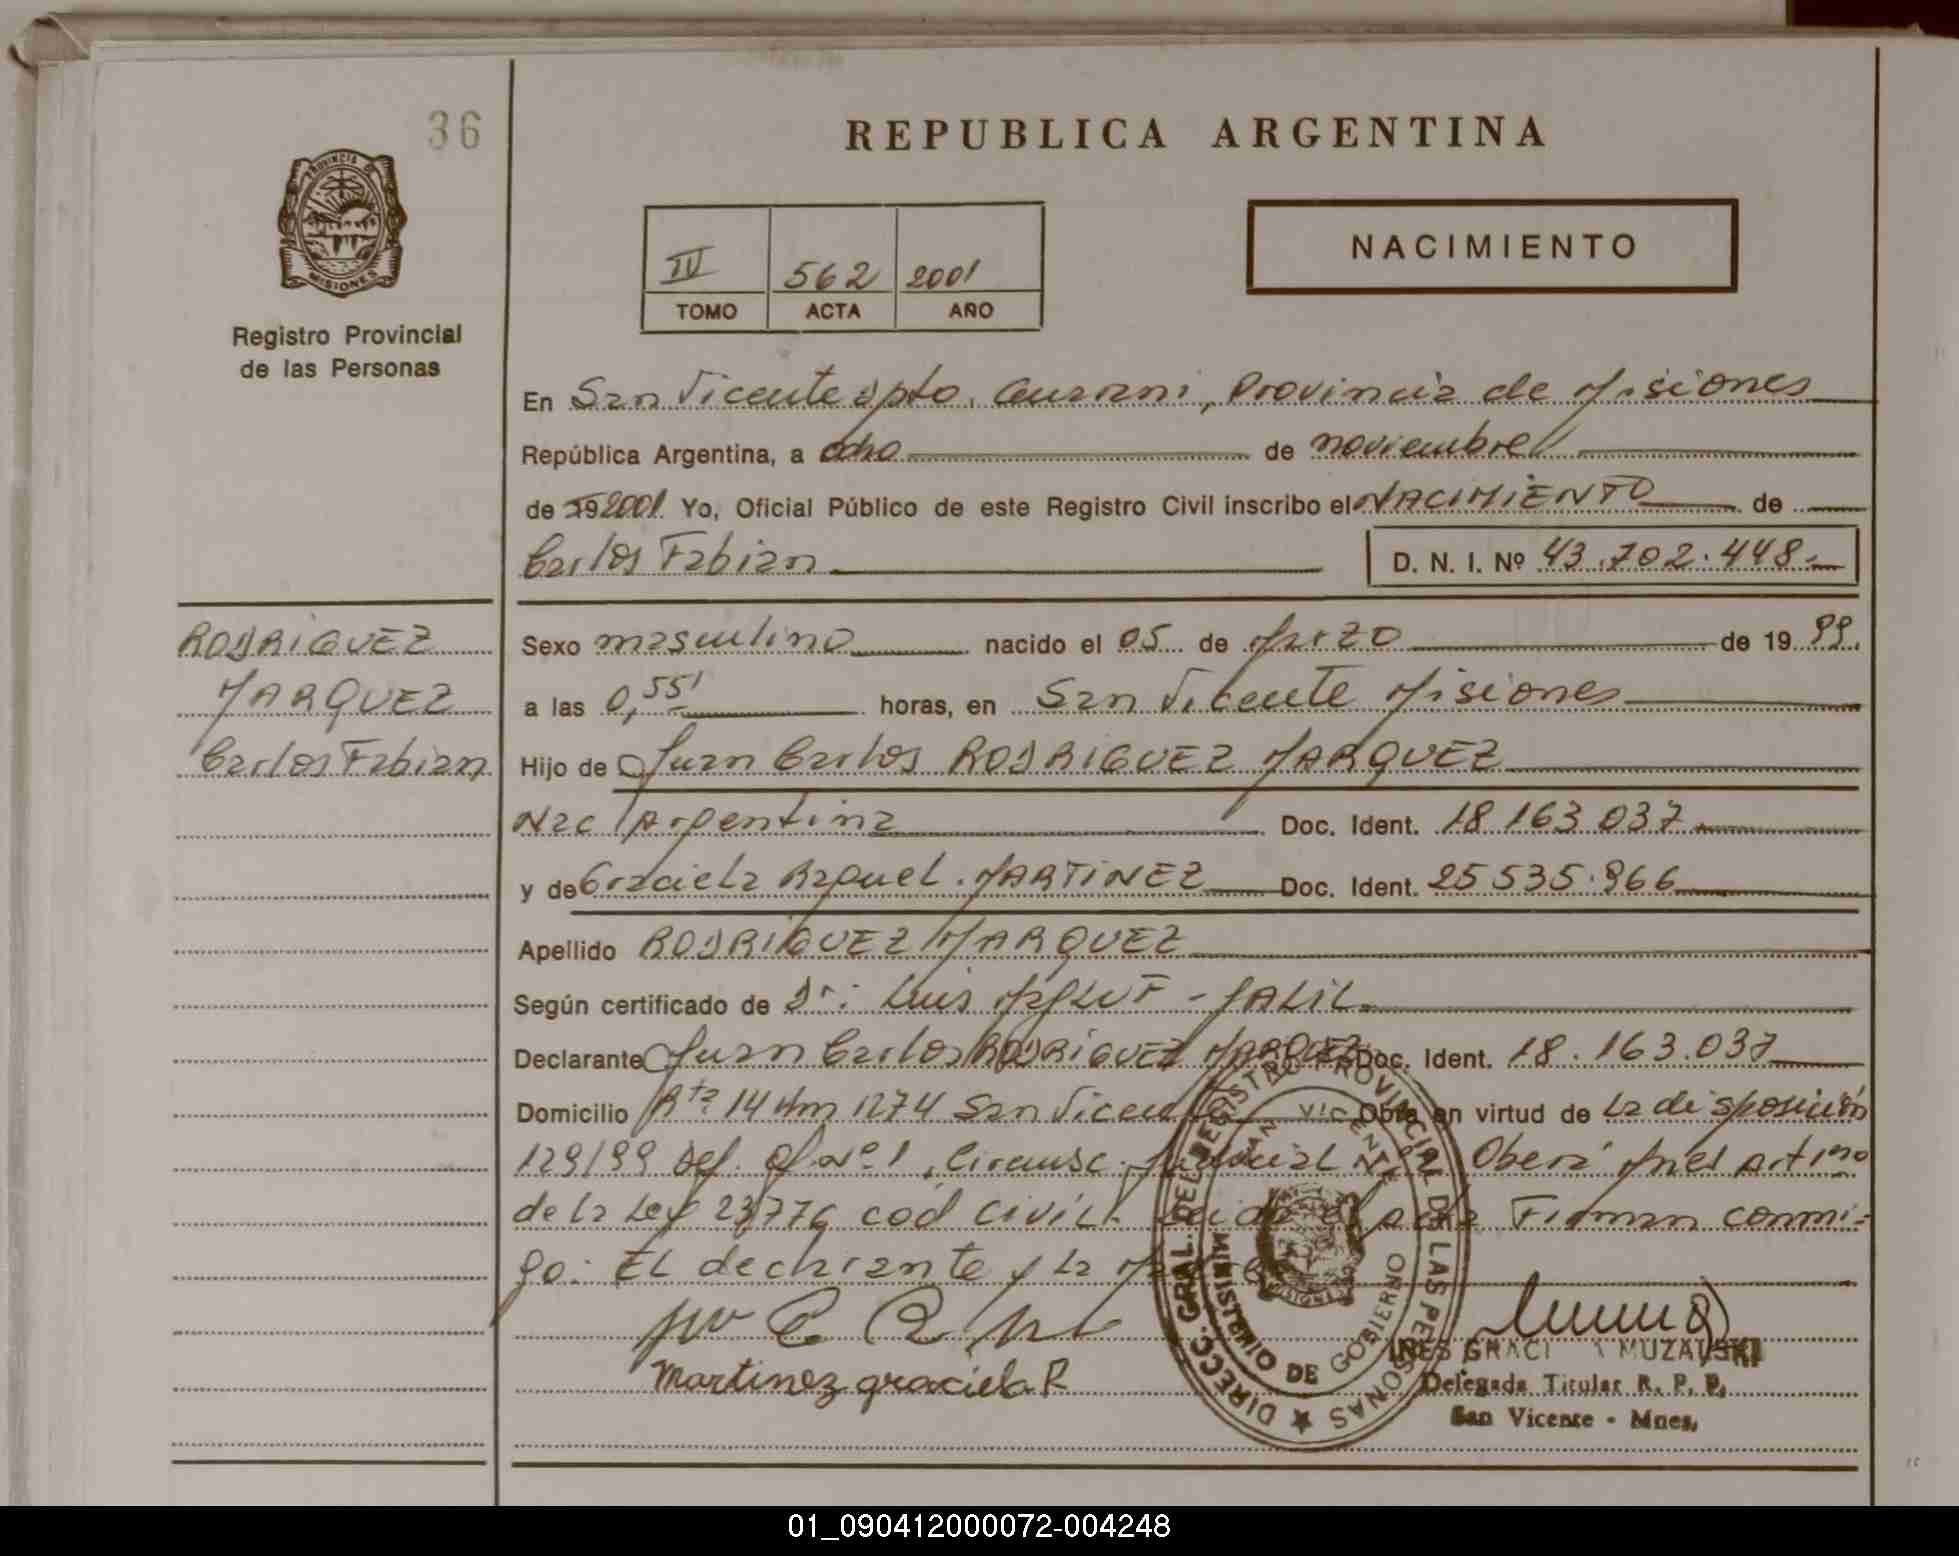 36
REPUBLICA ARGENTINA
PROVINCIA DE
MISIONES
Registro Provincial
de las Personas
IV 562 2001
TOMO ACTA AÑO
NACIMIENTO
En San Vicente Dpto. Guarani, Provincia de Misiones
República Argentina, a ocho de noviembre
de 19 2001 Yo, Oficial Público de este Registro Civil inscribo el NACIMIENTO de
Carlos Fabian D. N. I. Nº 43.702.448.-
RODRIGUEZ
MARQUEZ
Carlos Fabian
Sexo masculino nacido el 05 de Marzo de 19 99.
a las 0,55' horas, en San Vicente Misiones
Hijo de Juan Carlos RODRIGUEZ MARQUEZ
Nac Argentina Doc. Ident. 18 163 037
y de Graciela Raquel MARTINEZ Doc. Ident. 25 535.966
Apellido RODRIGUEZ MARQUEZ
Según certificado de Dr: Luis - JALIL
Declarante Juan Carlos RODRIGUEZ MARQUEZ Doc. Ident. 18.163.037
Domicilio Rta 14 Km 1274 San Vicente Obra en virtud de la disposición
129/99 Def. Of Nº 1, Circunsc. Judicial Oberá Mnes Art
de la Ley 23776 cod civil. Leida el acta Firman conmi-
go: El declarante y la Madre
Martinez graciela R
DIRECC. GRAL. DEL REGISTRO PROVINCIAL DE LAS PERSONAS
SAN VICENTE
MINISTERIO DE GOBIERNO
MISIONES
INES GRACI A MUZALSKI
Delegada Titular R. P. P.
San Vicente - Mnes.
01_090412000072-004248